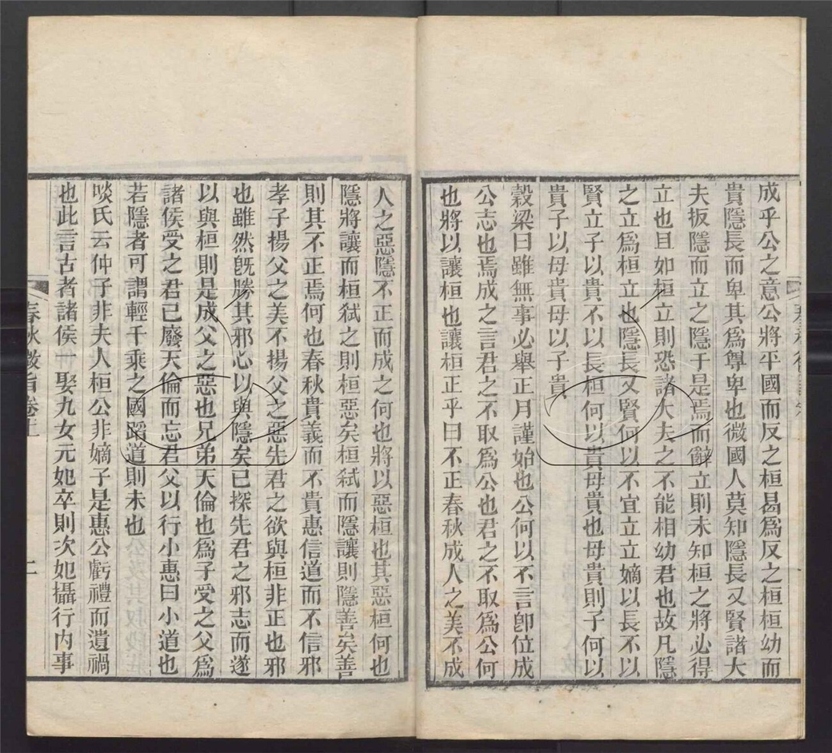 成乎公之意公將平國而反之桓曷爲反之桓桓幼而
貴隱長而卑其爲尊卑也微國人莫知隱長又賢諸大
夫扳隱而立之隱于是焉而辭立則未知桓之將必得
立也且如桓立則恐諸大夫之不能相幼君也故凡隱
之立爲桓立也隱長又賢何以不宜立立嫡以長不以
賢立子以貴不以長桓何以貴母貴也母貴則子何以
貴子以母貴母以子貴
穀梁曰雖無事必舉正月謹始也公何以不言卽位成
公志也焉成之言君之不取爲公也君之不取爲公何
也將以讓桓也讓桓正乎曰不正春秋成人之美不成
人之惡隱不正而成之何也將以惡桓也其惡桓何也
隱將讓而桓弒之則桓惡矣桓弒而隱讓則隱善矣善
則其不正焉何也春秋貴義而不貴惠信道而不信邪
孝子揚父之美不揚父之惡先君之欲與桓非正也邪
也雖然旣勝其邪心以與隱矣已探先君之邪志而遂
以與桓則是成父之惡也兄弟天倫也爲子受之父爲
諸侯受之君已廢天倫而忘君父以行小惠曰小道也
若隱者可謂輕千乘之國蹈道則未也
啖氏云仲子非夫人桓公非嫡子是惠公虧禮而遺禍
也此言古者諸侯一娶九女元妃卒則次妃攝行內事
春秋微旨卷上
二